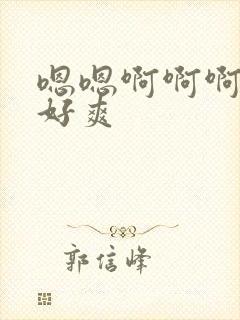 嗯嗯啊啊啊
好爽
郭信峰